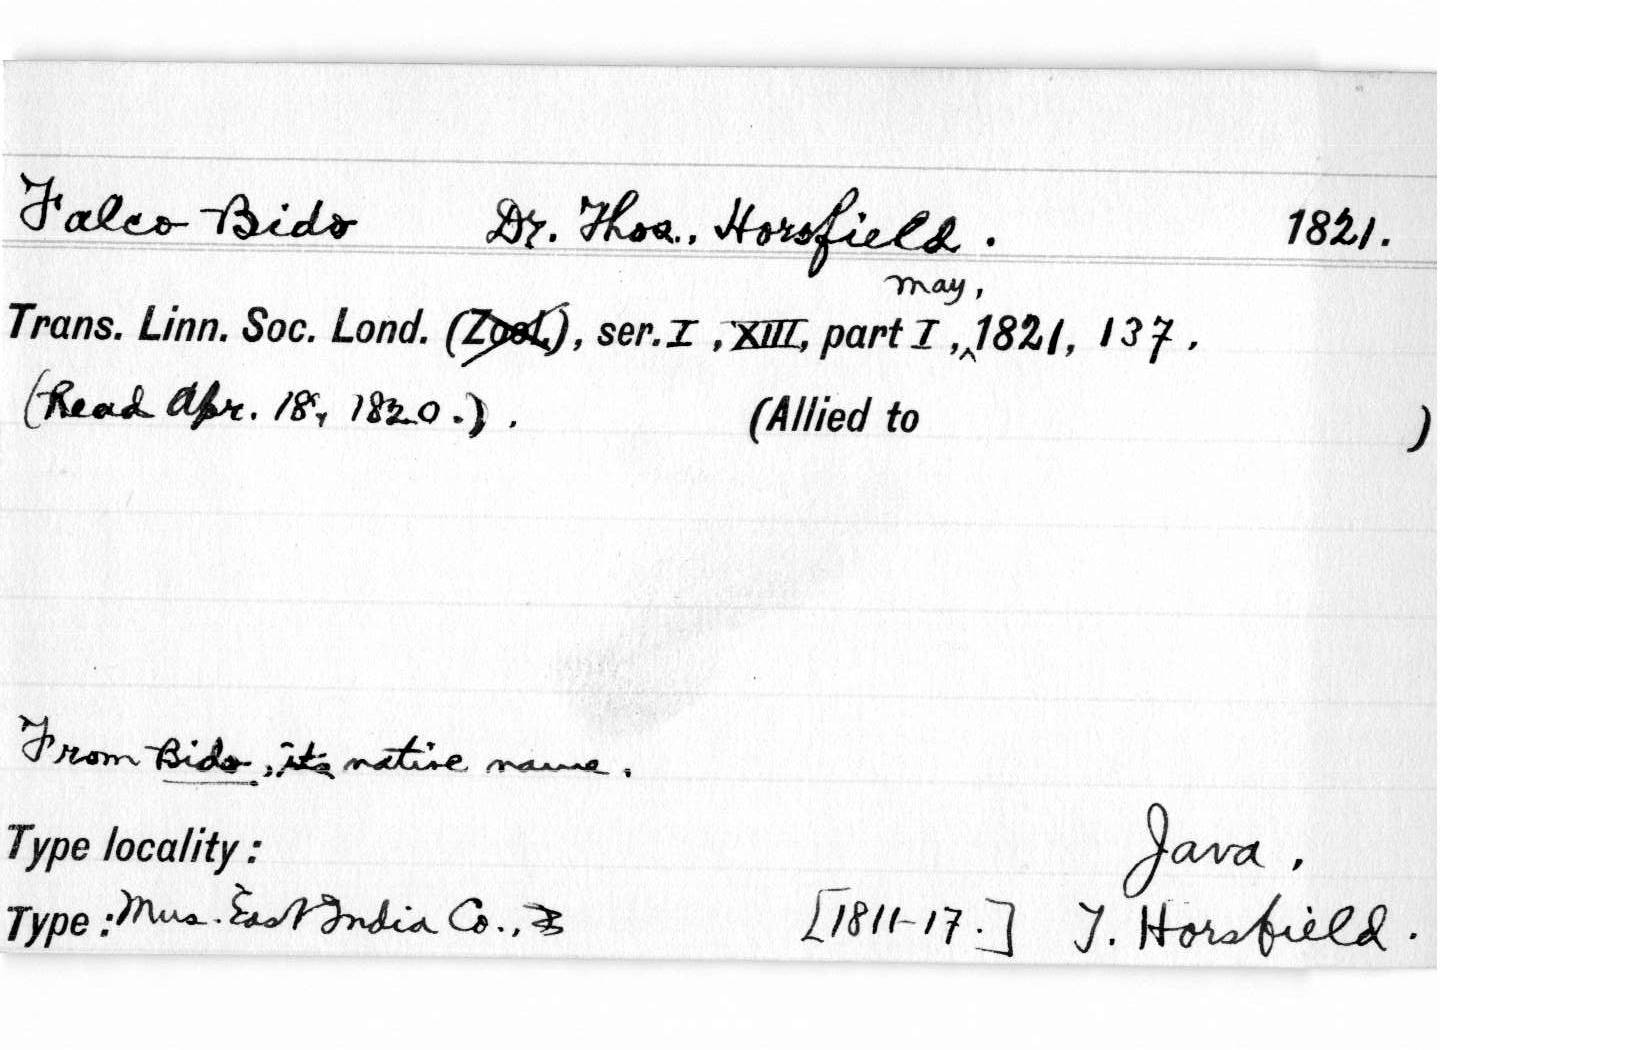 Falco Bido Dr. Thos. Horsfield. 1821.
May,
Trans. Linn. Soc. Lond. (Zool.), ser. I, XIII, part I, ^ 1821, 137.
(Read Apr. 18, 1820.). (Allied to )
From Bido, its native name.
Type locality: Java,
Type: Mus. East India Co., [1811-17.] T. Horsfield.